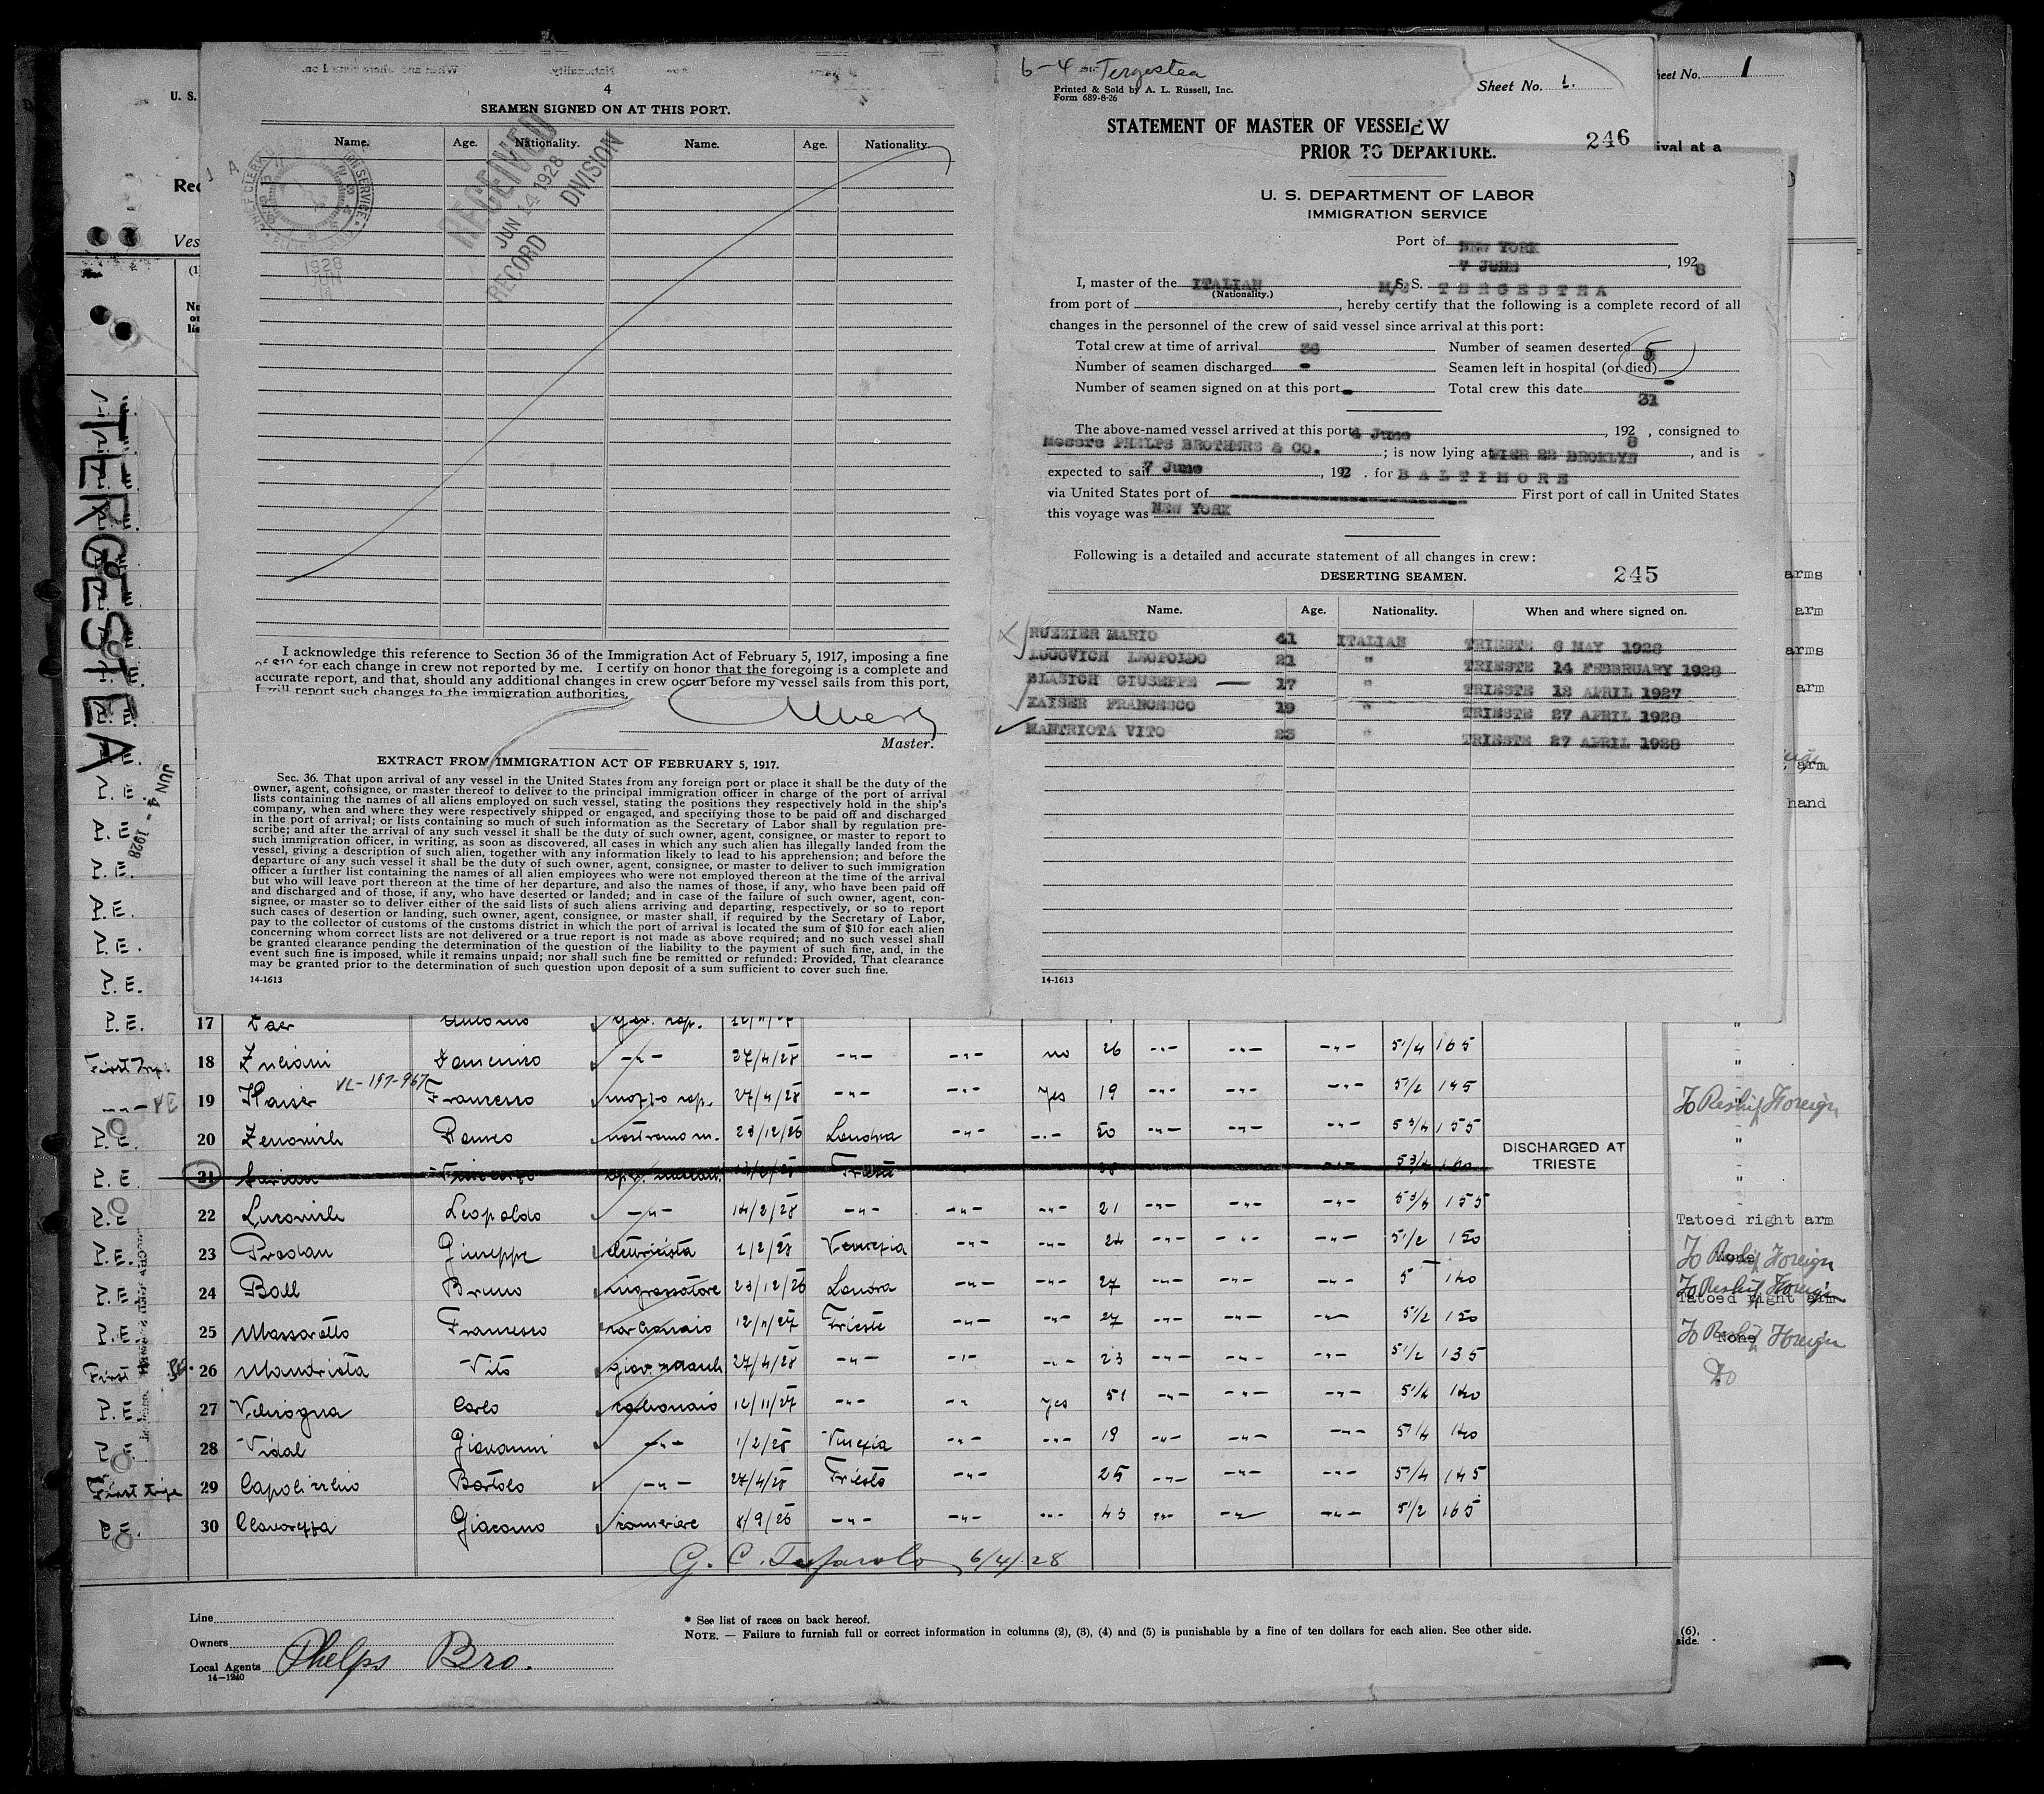 4
SEAMEN SIGNED ON AT THIS PORT.
Name. Age. Nationality. Name. Age. Nationality.
RECEIVED
JUN 14 1928
RECORD DIVISION
1928
JUN
I acknowledge this reference to Section 36 of the Immigration Act of February 5, 1917, imposing a fine
of $10 for each change in crew not reported by me. I certify on honor that the foregoing is a complete and
accurate report, and that, should any additional changes in crew occur before my vessel sails from this port,
I will report such changes to the immigration authorities.
Master.
EXTRACT FROM IMMIGRATION ACT OF FEBRUARY 5, 1917.
Sec. 36. That upon arrival of any vessel in the United States from any foreign port or place it shall be the duty of the
owner, agent, consignee, or master thereof to deliver to the principal immigration officer in charge of the port of arrival
lists containing the names of all aliens employed on such vessel, stating the positions they respectively hold in the ship's
company, when and where they were respectively shipped or engaged, and specifying those to be paid off and discharged
in the port of arrival; or lists containing so much of such information as the Secretary of Labor shall by regulation pre-
scribe; and after the arrival of any such vessel it shall be the duty of such owner, agent, consignee, or master to report to
such immigration officer, in writing, as soon as discovered, all cases in which any such alien has illegally landed from the
vessel, giving a description of such alien, together with any information likely to lead to his apprehension; and before the
departure of any such vessel it shall be the duty of such owner, agent, consignee, or master to deliver to such immigration
officer a further list containing the names of all alien employees who were not employed thereon at the time of the arrival
but who will leave port thereon at the time of her departure, and also the names of those, if any, who have been paid off
and discharged and of those, if any, who have deserted or landed; and in case of the failure of such owner, agent, con-
signee, or master so to deliver either of the said lists of such aliens arriving and departing, respectively, or so to report
such cases of desertion or landing, such owner, agent, consignee, or master shall, if required by the Secretary of Labor,
pay to the collector of customs of the customs district in which the port of arrival is located the sum of $10 for each alien
concerning whom correct lists are not delivered or a true report is not made as above required; and no such vessel shall
be granted clearance pending the determination of the question of the liability to the payment of such fine, and, in the
event such fine is imposed, while it remains unpaid; nor shall such fine be remitted or refunded: Provided, That clearance
may be granted prior to the determination of such question upon deposit of a sum sufficient to cover such fine.
14-1613
6-4 Tergestea
Printed & Sold by A. L. Russell, Inc.
Form 689-8-26
Sheet No. 1.
STATEMENT OF MASTER OF VESSEL
PRIOR TO DEPARTURE.
246
U. S. DEPARTMENT OF LABOR
IMMIGRATION SERVICE
Port of NEW YORK
7 JUNE, 1928
I, master of the ITALIAN M/S S.S. TERGESTEA
(Nationality.)
from port of , hereby certify that the following is a complete record of all
changes in the personnel of the crew of said vessel since arrival at this port:
Total crew at time of arrival 36 Number of seamen deserted 5
Number of seamen discharged - Seamen left in hospital (or died) -
Number of seamen signed on at this port - Total crew this date 31
The above-named vessel arrived at this port 4 June, 1928, consigned to
Messrs PHELPS BROTHERS & CO. ; is now lying at PIER 22 BROKLYN, and is
expected to sail 7 June, 192 . for BALTIMORE
via United States port of First port of call in United States
this voyage was NEW YORK
Following is a detailed and accurate statement of all changes in crew:
DESERTING SEAMEN. 245
Name. Age. Nationality. When and where signed on.
RUZZIER MARIO 41 ITALIAN TRIESTE 8 MAY 1928
LUCOVICH LEOPOLDO 21 " TRIESTE 14 FEBRUARY 1928
BLASICH GIUSEPPE 17 " TRIESTE 12 APRIL 1927
KAISER FRANCESCO 19 " TRIESTE 27 APRIL 1928
MANTRIOTA VITO 23 " TRIESTE 27 APRIL 1928
14-1613
U. S.
Sheet No. 1
ival at a
TERGESTEA
JUN 4 - 1928
arms
arm
arms
arm
arm
hand
P.E. 17 Antonio
First Trip 18 Zuliani 27/4/28 no 26 5 1/4 165
19 VL-197-967 Francesco mozzo 27/4/28 Yes 19 5 1/2 145 To Reship Foreign
P.E. 20 23/12/26 Londra 50 5 3/4 155
P.E. 21 Trieste 5 3/4 160 DISCHARGED AT TRIESTE
P.E. 22 Leopoldo 14/2/28 21 5 3/4 155 Tatoed right arm
P.E. 23 Predan Giuseppe elettricista 1/2/28 Venezia 24 5 1/2 150 None To Reship Foreign
P.E. 24 Boll Bruno ingrassatore 23/12/26 Londra 27 5 140 Tatoed right arm To Reship Foreign
P.E. 25 Massarotto Francesco carbonaio 12/11/27 Trieste 27 5 1/2 150 None To Reship Foreign
First 26 Mandriota Vito 27/4/28 23 5 1/2 135 Do
P.E. 27 Carlo carbonaio 12/11/27 Yes 51 5 1/4 140
P.E. 28 Vidal Giovanni 1/2/28 Venezia 19 5 1/4 140
First trip 29 Bortolo 27/4/28 Trieste 25 5 1/4 145
P.E. 30 Giacomo cameriere 8/9/26 43 5 1/2 165
6/4/28
Line
Owners
Local Agents Phelps Bro.
14-1240
* See list of races on back hereof.
NOTE. — Failure to furnish full or correct information in columns (2), (3), (4) and (5) is punishable by a fine of ten dollars for each alien. See other side.
(6),
side.